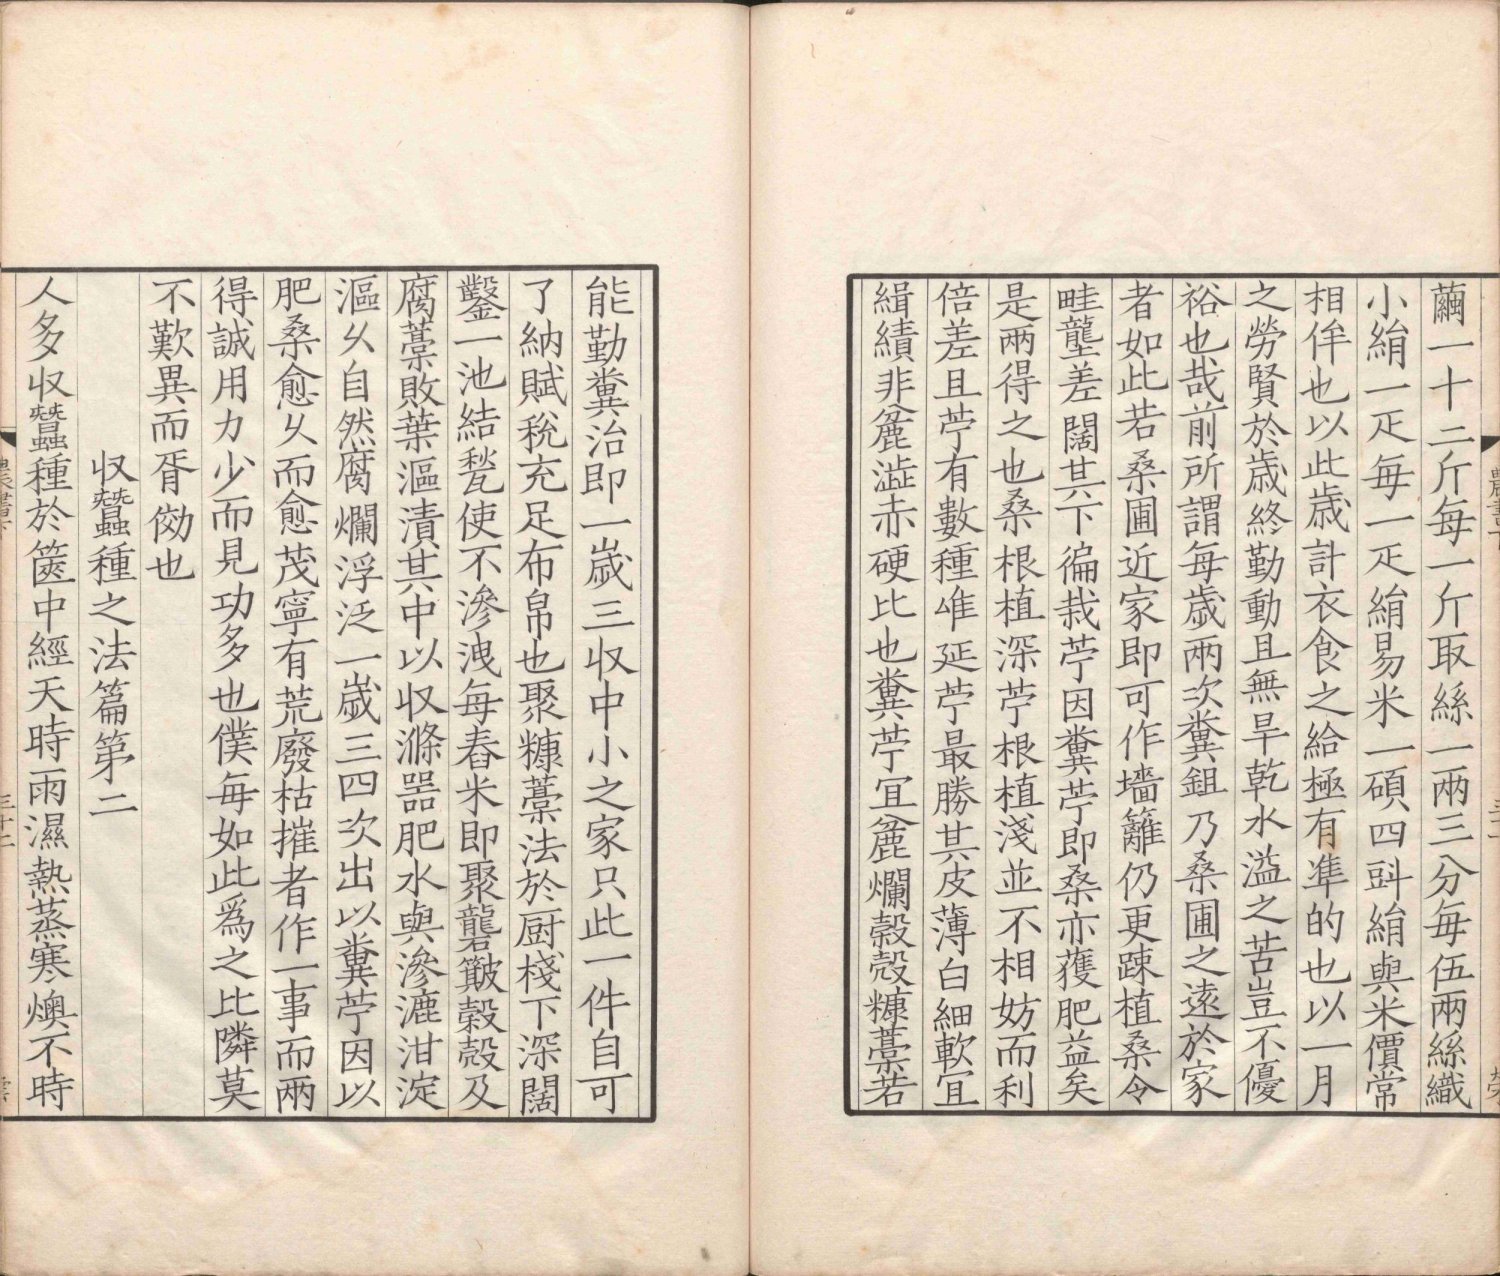 繭一十二斤每一斤取絲一兩三分每伍兩絲織
小絹一疋每一疋絹易米一碩四㪷絹與米價常
相侔也以此歲計衣食之給極有準的也以一月
之勞賢於歲終勤動且無旱乾水溢之苦豈不優
裕也哉前所謂每歲兩次糞鉏乃桑圃之遠於家
者如此若桑圃近家即可作墻籬仍更踈植桑令
畦壟差闊其下徧栽苧因糞苧即桑亦獲肥益矣
是兩得之也桑根植深苧根植淺並不相妨而利
倍差且苧有數種唯延苧最勝其皮薄白細軟宜
緝績非麄澁赤硬比也糞苧宜麄爛穀殼糠藁若
能勤糞治即一歲三収中小之家只此一件自可
了納賦稅充足布帛也聚糠藁法於厨棧下深闊
鑿一池結甃使不滲洩每舂米即聚礱簸穀殼及
腐藁敗葉漚漬其中以収滌器肥水與滲漉泔淀
漚乆自然腐爛浮泛一歲三四次出以糞苧因以
肥桑愈乆而愈茂寧有荒廢枯摧者作一事而兩
得誠用力少而見功多也僕每如此為之比隣莫
不歎異而胥傚也
収蠶種之法篇第二
人多収蠶種於篋中經天時雨濕熱蒸寒燠不時